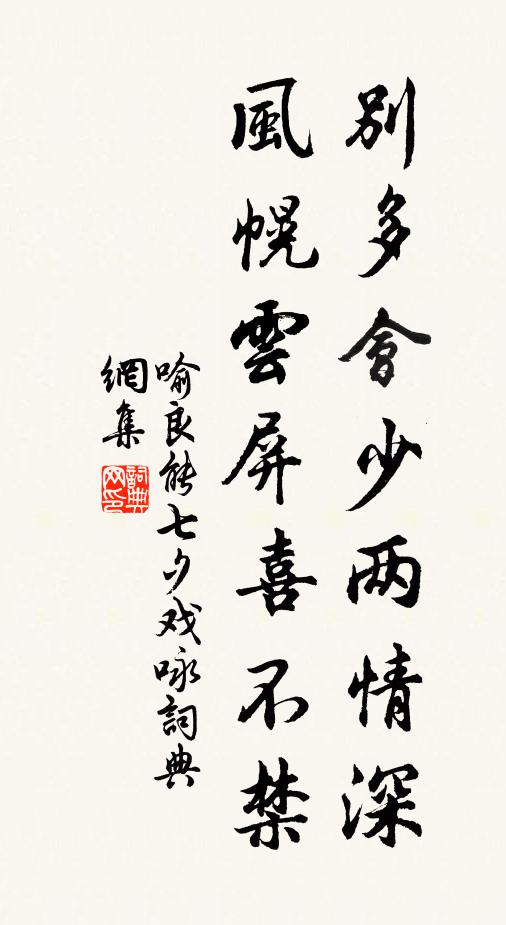 別多會少两情深
風幌雲屏喜不禁
喻良能七夕戏咏詞典
網集
詞典網印